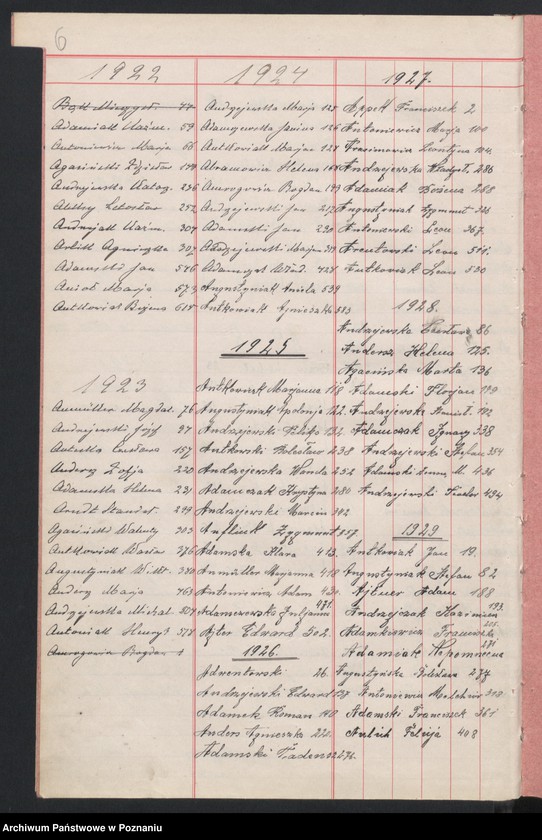 6
1922
Adamiak Kazim. 59
Antoniewicz Marja 66
Agaciński Zdzisław
Andrzejewska Walog. 236
252
Andrzejak Kazim. 307
Agnieszka 307
Adamski Jan 546
Anioł Marja 573
Antkowiak Bożena 615
1923
Anmüller Magdal. 76
Andrzejewski Józef 97
157
Anders Zofja 220
Adamska Helena 231
Arndt Stanisł. 299
Agaciński Walenty 303
Antkowiak Maria 376
Augustyniak Witt. 380
Anders Marja 463
Andrzejewska Michal. 507
Antoniak Henryk 577
Amrogowicz Bogdan 1
1924
Andrzejewska Marja 125
Adamczewska Janina 126
Antkowiak Marjan 128
Abramowicz Helena 165
Amrogowicz Bogdan 199
Andrzejewski Jan 217
Adamski Jan 290
Andrzejewski Marjan
Adamczak
Augustyniak Aniela 539
Antkowiak Agnieszka 583
1925
Antkowiak Marjanna 118
Augustyniak Apolonja 122
Andrzejewski Feliks 132
Antkowski Bolesław 238
Andrzejewska Wanda 252
Adamczak Krystyna 280
Andrzejewski Marcin 302
Zygmunt 357
Adamska Klara 413
Anmüller Marjanna 418
Antoniewicz Adam 430
Adamczewska 471
Ajzler Edward 502
1926.
Adwentowski 26
Andrzejewski Edward 87
Adamek Roman 110
Anders Agnieszka 220
Adamski Tadeusz 276
1927.
Appelt Franciszek 2
Antoniewicz Marja 100
Leontyna 104
Andrzejewska Władysł. 286
Adamiak Bożena 288
Augustyniak Zygmunt 328
Antoniewski Leon 367
Arentowski Leon 511
Antkowiak Leon 530
1928.
Andrzejewska Czesława 86
Anders Helena 125
Agacińska Marta 136
Adamski Florjan 179
Andrzejewska Stanisł. 192
Adamczak Ignacy 338
Andrzejewski Stefan 354
Adamski M. 436
Andrzejewski Teodor 494
1929
Antkowiak Jan 19
Augustyniak Stefan 82
Ajtner Adam 188
Andrzejczak Kazimierz 193
Adamkiewicz Franciszka 205
Adamiak Nepomucena 271
Augustyńska Bolesława 274
Antoniewicz Melchior 303
Adamski Franciszek 361
Felicja 408
Archiwum Państwowe w Poznaniu